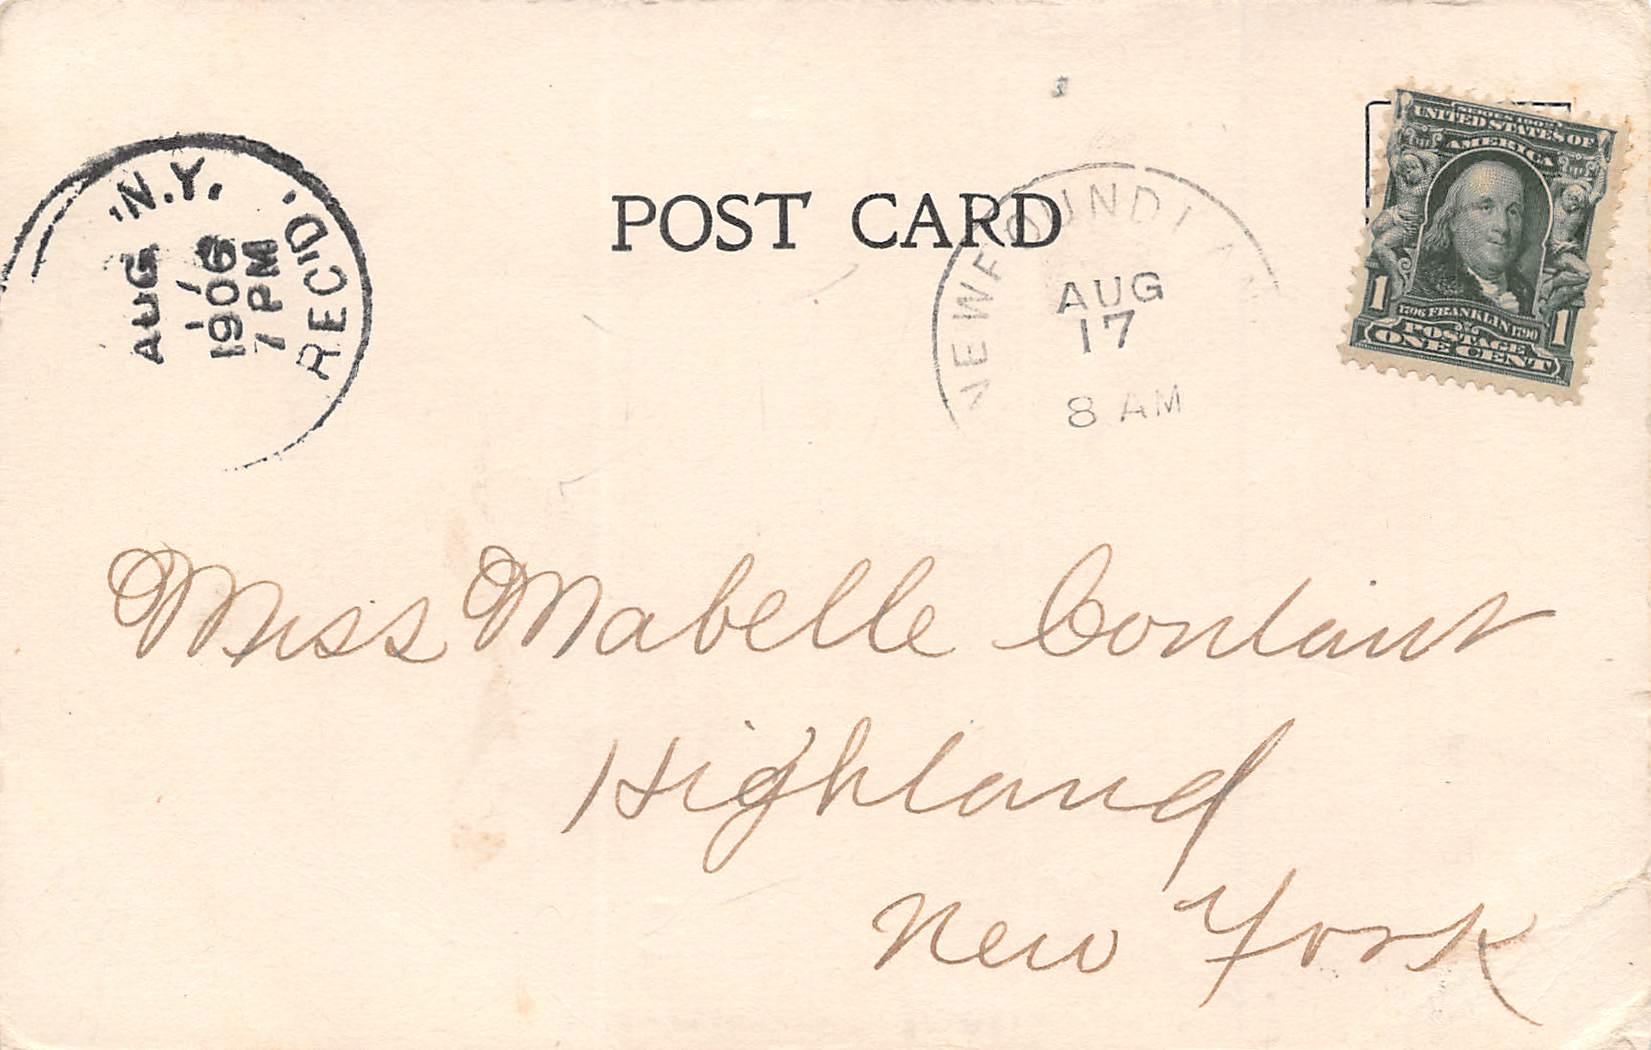 N.Y.
AUG
17
1906
7 PM
REC'D.
POST CARD
NEWFOUNDLAN
AUG
17
8 AM
SERIES 1902
UNITED STATES OF
AMERICA
1 1706 FRANKLIN 1790 1
POSTAGE
ONE CENT
Miss Mabelle Contant
Highland
New York